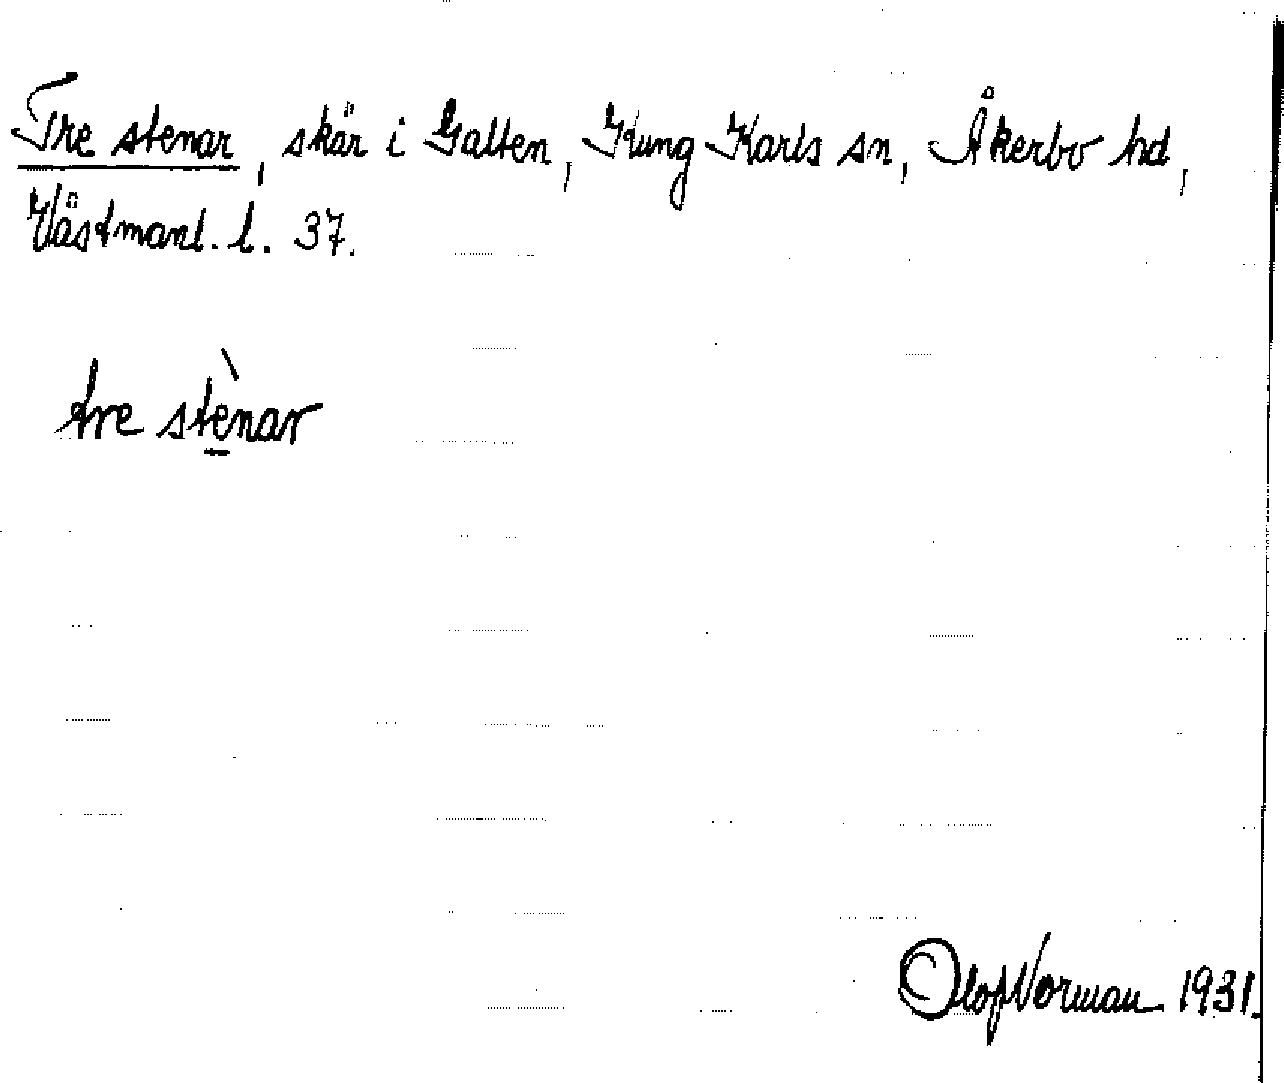 Tre stenar, skär i Galten, Kung Karls sn, Åkerbo hd,
Västmanl. l. 37.
tre stènar
Olof Norman 1931.